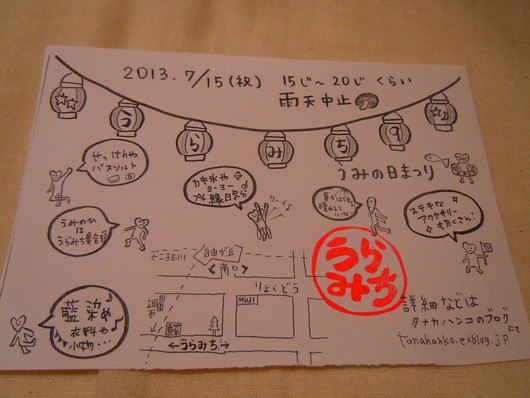 2013. 7/15(祝) 15じ〜20じくらい
雨天中止
うらみちの
うみの日まつり
せっけんや
バスソルト
カキ氷や
ヨーヨー
プチ縁日気分
ステキな
アクセサリー
もたくさん!
うみのれんは
うらみち集合
藍染め
衣料や
小物…
二子玉川
自由が丘
南口
りょくどう
MUJI
うらみち
うらみち
詳細などは
タナカハンコのブログにて
tanahanko.exblog.jp